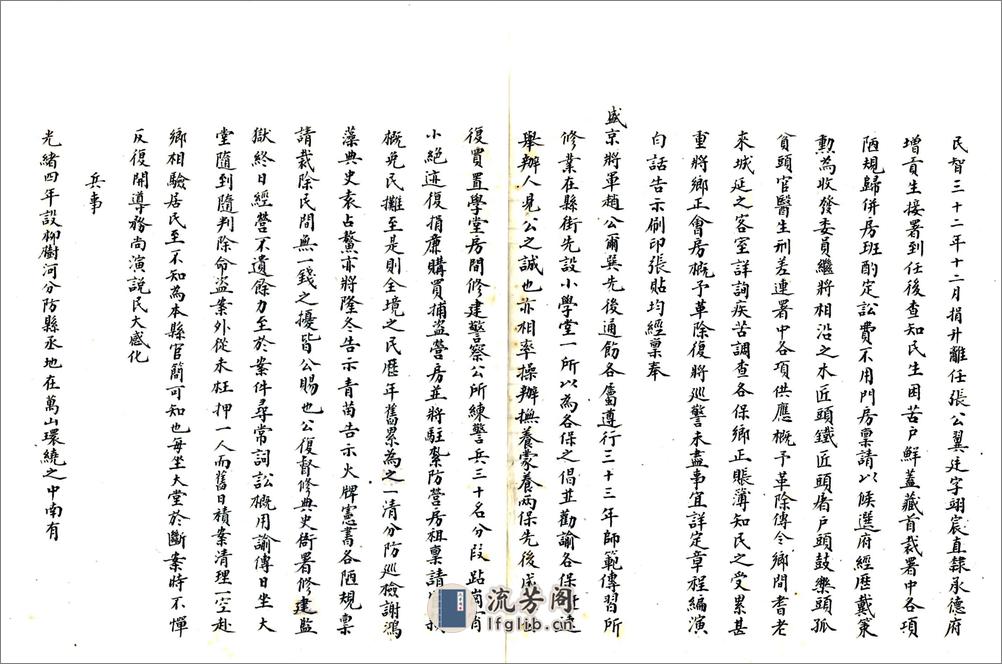 民智三十二年十二月捐升離任張公翼廷字翊宸直隸承德府
增貢生接署到任後查知民生困苦戶鮮蓋藏首裁署中各項
陋規歸併房班酌定訟費不用門房稟請以候選府經歷戴秉
勳為收發委員繼將相沿之木匠頭鐵匠頭屠戶頭鼓樂頭孤
貧頭官醫生刑差連署中各項供應概予革除傳令鄉間耆老
來城延之客室詳詢疾苦調查各保鄉正賬簿知民之受累甚
重將鄉正會房概予革除復將巡警未盡事宜詳定章程編演
白話告示刷印張貼均經稟奉
盛京將軍趙公爾巽先後通飭各屬遵行三十三年師範傳習所
修業在縣街先設小學堂一所以為各保之倡並勸諭各保
舉辦人見公之誠也亦相率操辦撫養蒙養兩保先後成
復買置學堂房間修建警察公所練警兵三十名分段跕崗宵
小絕迹復捐廉購買捕盜營房並將駐紮防營房租稟請
概免民攤至是則全境之民歷年舊累為之一清分防巡檢謝鴻
藻典史袁占鰲亦將隆冬告示青苗告示火牌憲書各陋規稟
請裁除民間無一錢之擾皆公賜也公復督修典史衙署修建監
獄終日經營不遺餘力至於案件尋常詞訟概用諭傳日坐大
堂隨到隨判除命盜案外從未枉押一人而舊日積案清理一空赴
鄉相驗居民至不知為本縣官簡可知也每坐大堂於斷案時不憚
反復開導務尚演說民大感化
兵事
光緒四年設柳樹河分防縣丞地在萬山環繞之中南有
流芳阁
lfglib.cn